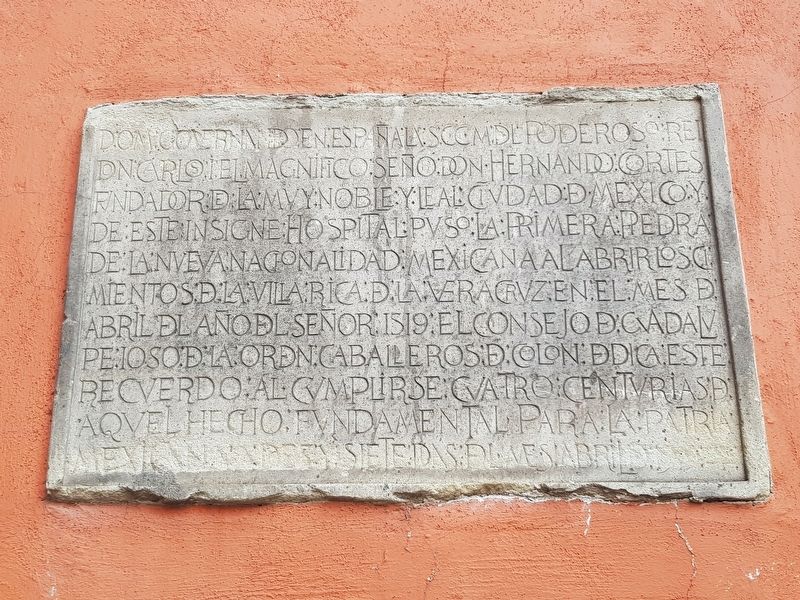 DOM: GOVERNANDO: EN: ESPAÑA LA: S.C.C.M: DL PODEROSO: REI
DN: CARLO: I: EL MAGNIFICO: SEÑO: DON: HERNANDO: CORTES
FVNDADOR: D: LA: MVY: NOBLE: Y: LEAL: CIVDAD: D: MEXICO: Y
DE: ESTE: INSIGNE: HOSPITAL: PVSO: LA: PRIMERA: PIEDRA
DE: LA: NVEVA: NACIONALIDAD: MEXICANA: AL: ABRIR: LOS: CI
MIENTOS: D: LA: VILLA: RICA: D: LA: VERACRVZ: EN: EL: MES: D
ABRIL: DL: AÑO: DL: SEÑOR: 1519: EL CONSEJO: D: GVADALV
PE: 1050: D: LA: ORDN: CABALLEROS: D: COLON: DDICA: ESTE
RECVERDO: AL: CVMPLIRSE: CVATRO: CENTVRIAS: D
AQVEL HECHO: FVNDAMENTAL PARA: LA: PATRIA
SIETE DIAS: DL MES ABRIL